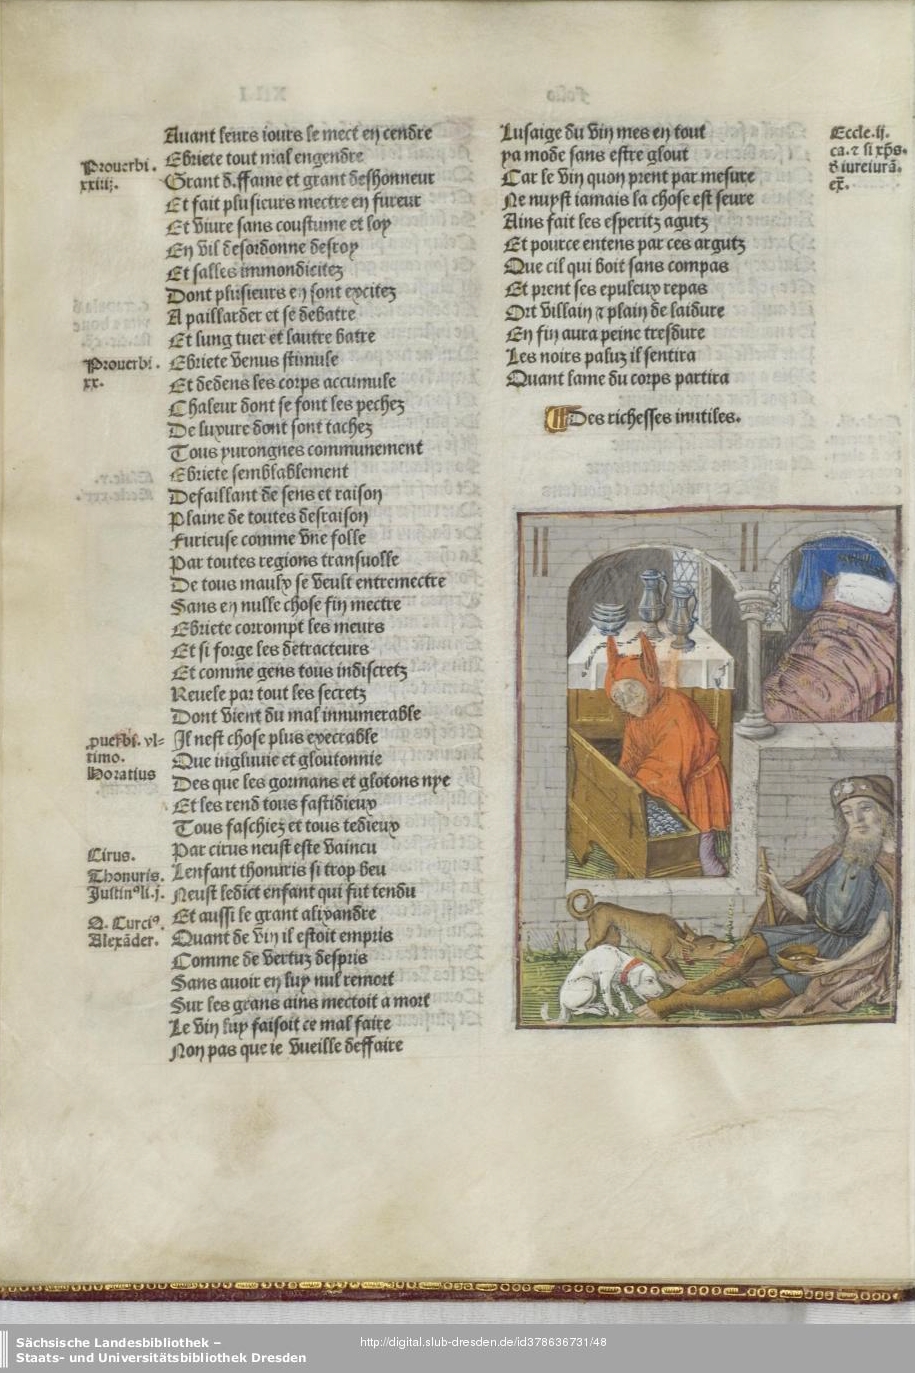 Auant leurs iours se mect en cendre
Ebriete tout mal engendre
Prouerbi.
xxiij.
Grant d.ffame et grant deshonneur
Et fait plusieurs mectre en fureur
Et viure sans coustume et loy
En vil desordonne desroy
Et salles immondicitez
Dont plusieurs en sont excitez
A paillarder et se debatre
Et lung tuer et lautre batre
Prouerbi.
xx.
Ebriete venus stimule
Et dedens les corps accumule
Chaleur dont se font les pechez
De luxure dont sont tachez
Tous yurongnes communement
Ebriete semblablement
Defaillant de sens et raison
Plaine de toutes desraison
Furieuse comme vne folle
Par toutes regions transuolle
De tous maulx se veult entremectre
Sans en nulle chose fin mectre
Ebriete corrompt les meurs
Et si forge les detracteurs
Et comme gens tous indiscretz
Reuele par tout les secretz
Dont vient du mal innumerable
puerbi. vl=
timo.
Horatius
Il nest chose plus execrable
Que ingluuie et gloutonnie
Des que les gormans et glotons nye
Et les rend tous fastidieux
Tous faschiez et tous tedieux
Cirus.
Thonuris.
Justinꝰ li. j.
Par cirus neust este vaincu
Lenfant thonuris si trop beu
Neust ledict enfant qui fut tendu
Q. Curciꝰ.
Alexāder.
Et aussi le grant alixandre
Quant de vin il estoit empris
Comme de vertuz despris
Sans auoir en luy nul remort
Sur les grans ains mectoit a mort
Le vin luy faisoit ce mal faire
Non pas que ie vueille deffaire
Lusaige du vin mes en tout
ya mode sans estre glout
Car le vin quon prent par mesure
Ne nuyst iamais la chose est seure
Ains fait les esperitz agutz
Et pource entens par ces argutz
Que cil qui boit sans compas
Et prent ses epuleux repas
Ort villain ⁊ plain de laidure
En fin aura peine tresdure
Les noirs paluz il sentira
Quant lame du corps partira
Eccle. ij.
ca. ⁊ si xp̄s.
d iureiurā.
ex̄.
Des richesses inutiles.
Sächsische Landesbibliothek –
Staats- und Universitätsbibliothek Dresden
http://digital.slub-dresden.de/id378636731/48